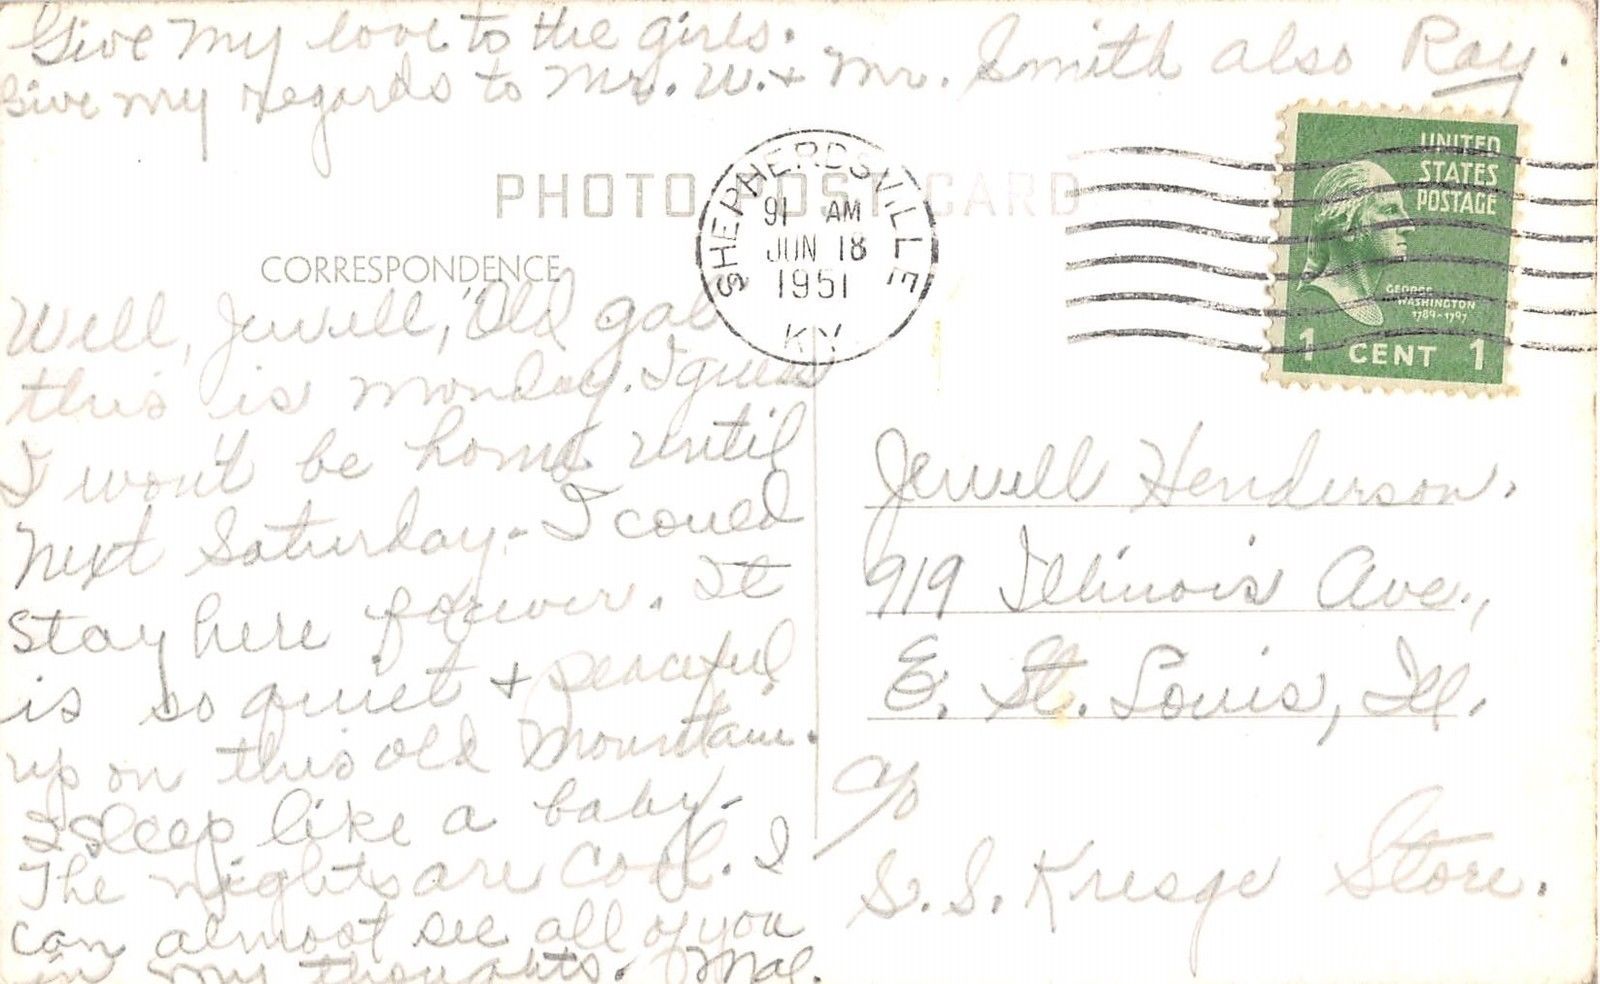 Give my love to the girls.
Give my regards to Mr. W. & Mr. Smith also Ray.
PHOTO POST CARD
SHEPHERDSVILLE
91 AM
JUN 18
1951
KY.
UNITED
STATES
POSTAGE
GEORGE
WASHINGTON
1789-1797
1 CENT 1
CORRESPONDENCE
Well, Jewell, "Old gal"
this is Monday. I guess
I won't be home until
next Saturday - I could
stay here forever. It
is so quiet & peaceful
up on this old Mountain.
I sleep like a baby.
The nights are cool. I
can almost see all of you
in my thoughts. Mae.
Jewell Henderson.
919 Illinois Ave.,
E. St. Louis, Ill.
c/o
S.S. Kresge Store.